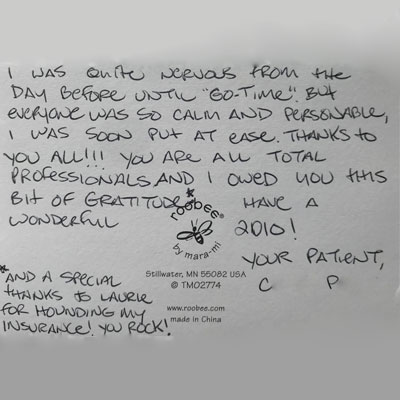 I WAS QUITE NERVOUS FROM THE
DAY BEFORE UNTIL "GO-TIME". BUT
EVERYONE WAS SO CALM AND PERSONABLE,
I WAS SOON PUT AT EASE. THANKS TO
YOU ALL!!! YOU ARE ALL TOTAL
PROFESSIONALS AND I OWED YOU THIS
BIT OF GRATITUDE.* HAVE A
WONDERFUL 2010!
roobee®
by mara-mi
YOUR PATIENT,
C P
Stillwater, MN 55082 USA
@ TM02774
www.roobee.com
made in China
*AND A SPECIAL
THANKS TO LAURIE
FOR HOUNDING MY
INSURANCE! YOU ROCK!